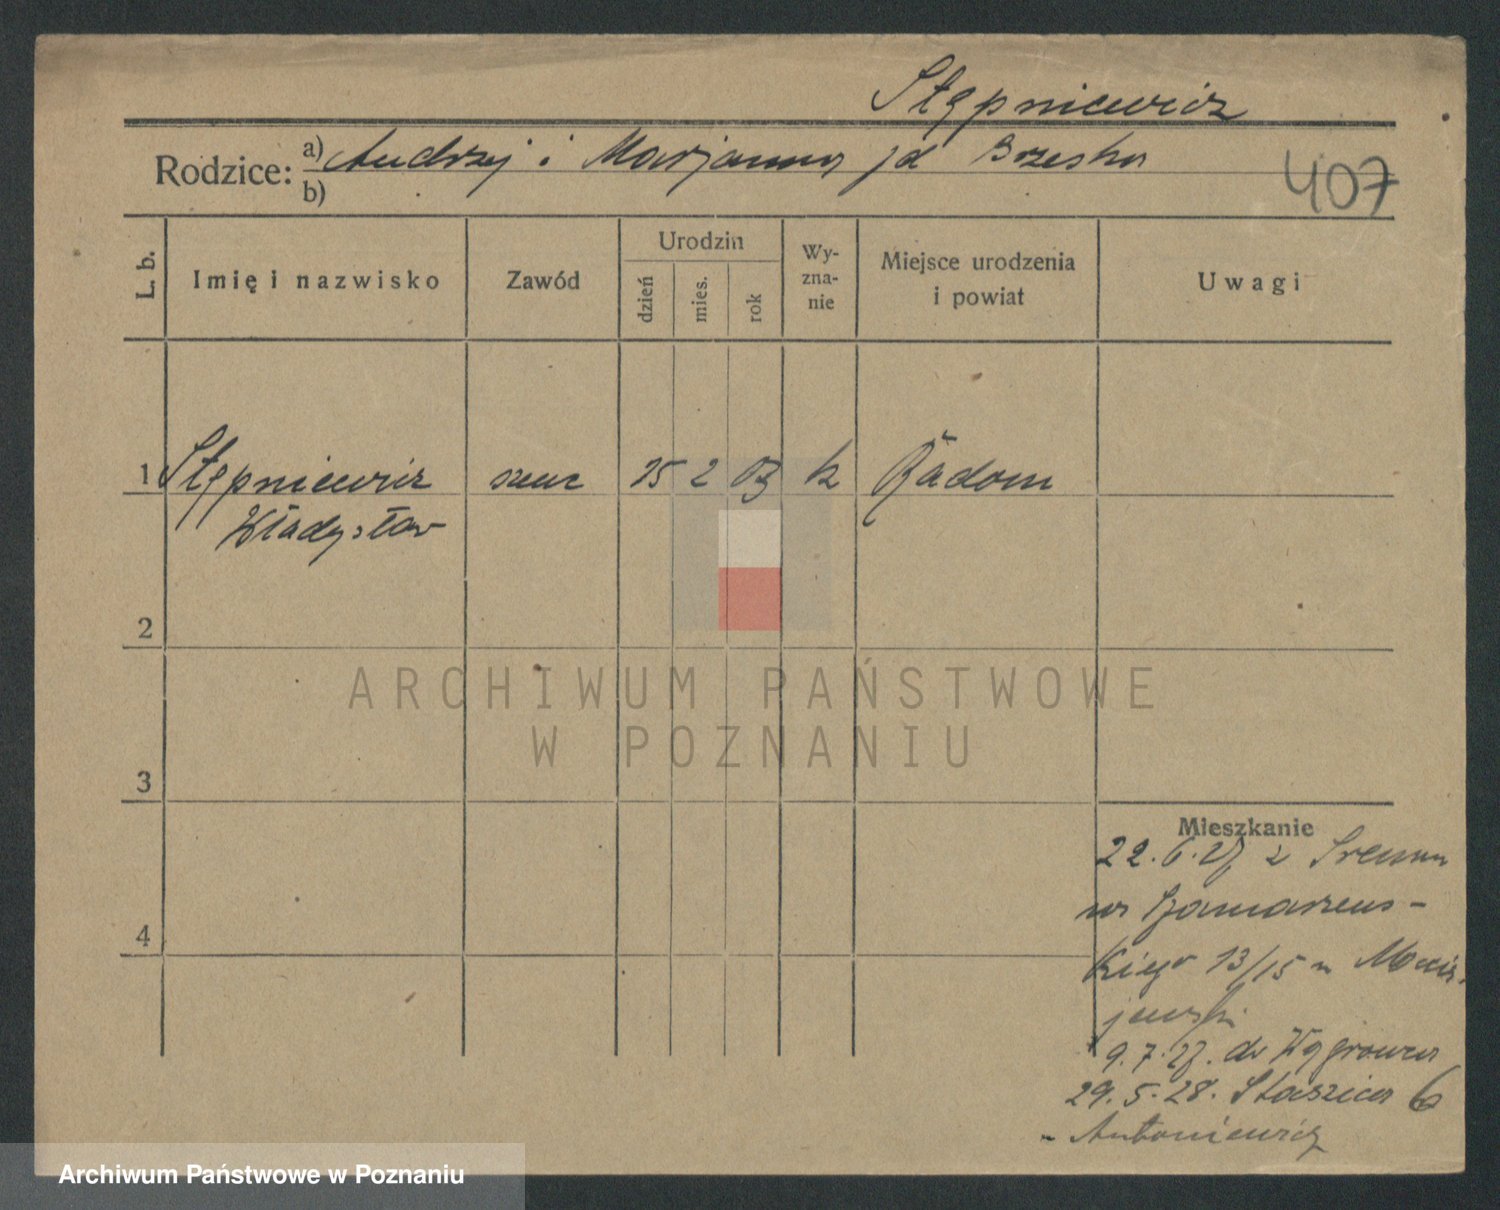 Stępniewicz
Rodzice: a) Andrzej i Marjanna jd Brzeska
b)
407
L. b.
Imię i nazwisko
Zawód
Urodzin
dzień
mies.
rok
Wy-
zna-
nie
Miejsce urodzenia
i powiat
Uwagi
1 Stępniewicz szewc 15 2 03 k Radom
Władysław
2
3
4
Mieszkanie
22.6.27 z Śremu
na
kiego 13/15 u Maciej
jewski
9.7.27. do Wągrowca
29.5.28. Staszica 6
- Antoniewicz
ARCHIWUM PAŃSTWOWE
W POZNANIU
Archiwum Państwowe w Poznaniu